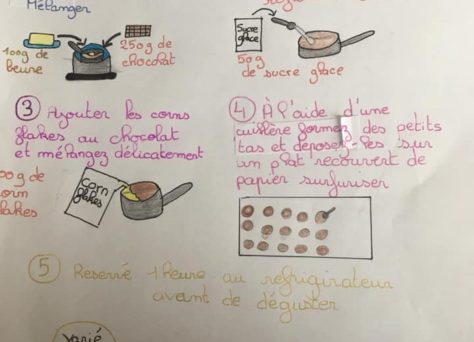 Mélanger
100g de
beurre
250g de
chocolat
Sucre
glace
50g
de sucre glace
③ Ajouter les corns
flakes au chocolat
et mélangez délicatement
00g de
orn
lakes
Corn
flakes
④ À l'aide d'une
cuillère formez des petits
tas et deposez-les sur
un plat recouvert de
papier surfuriser
⑤ Reservé 1 heure au refrigirateur
avant de déguster
varié